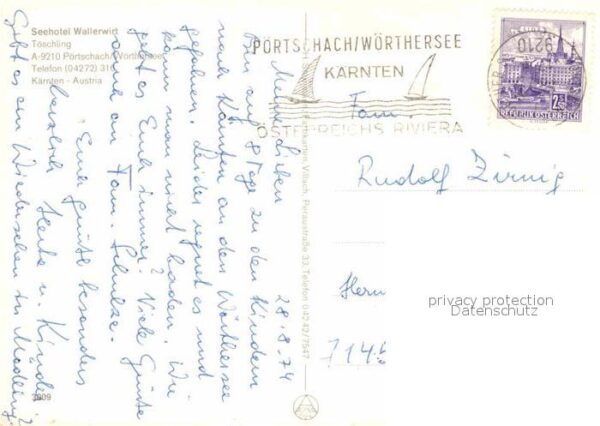 Seehotel Wallerwirt
Töschling
A-9210 Pörtschach/Wörthersee
Telefon (04272) 316
Kärnten - Austria
28.8.74
Meine Lieben
Bin auf 8 Tage zu den Kindern
nach Kärnten an den Wörthersee
gefahren. Leider regnet es und
kann man nicht baden. Wie
geht es Euch immer? Viele Grüsse
auch an Fam.
Euch grüsst besonders
herzlich Herta u. Kinder
Gibt es ein Wiedersehen in Mödling?
3809
Villach, Peraustraße 33, Telefon 04242/7647
PÖRTSCHACH/WÖRTHERSEE
KÄRNTEN
ÖSTERREICHS RIVIERA
9210
REPUBLIK ÖSTERREICH
Fam.
Rudolf Zirnig
Herrn
714
privacy protection
Datenschutz